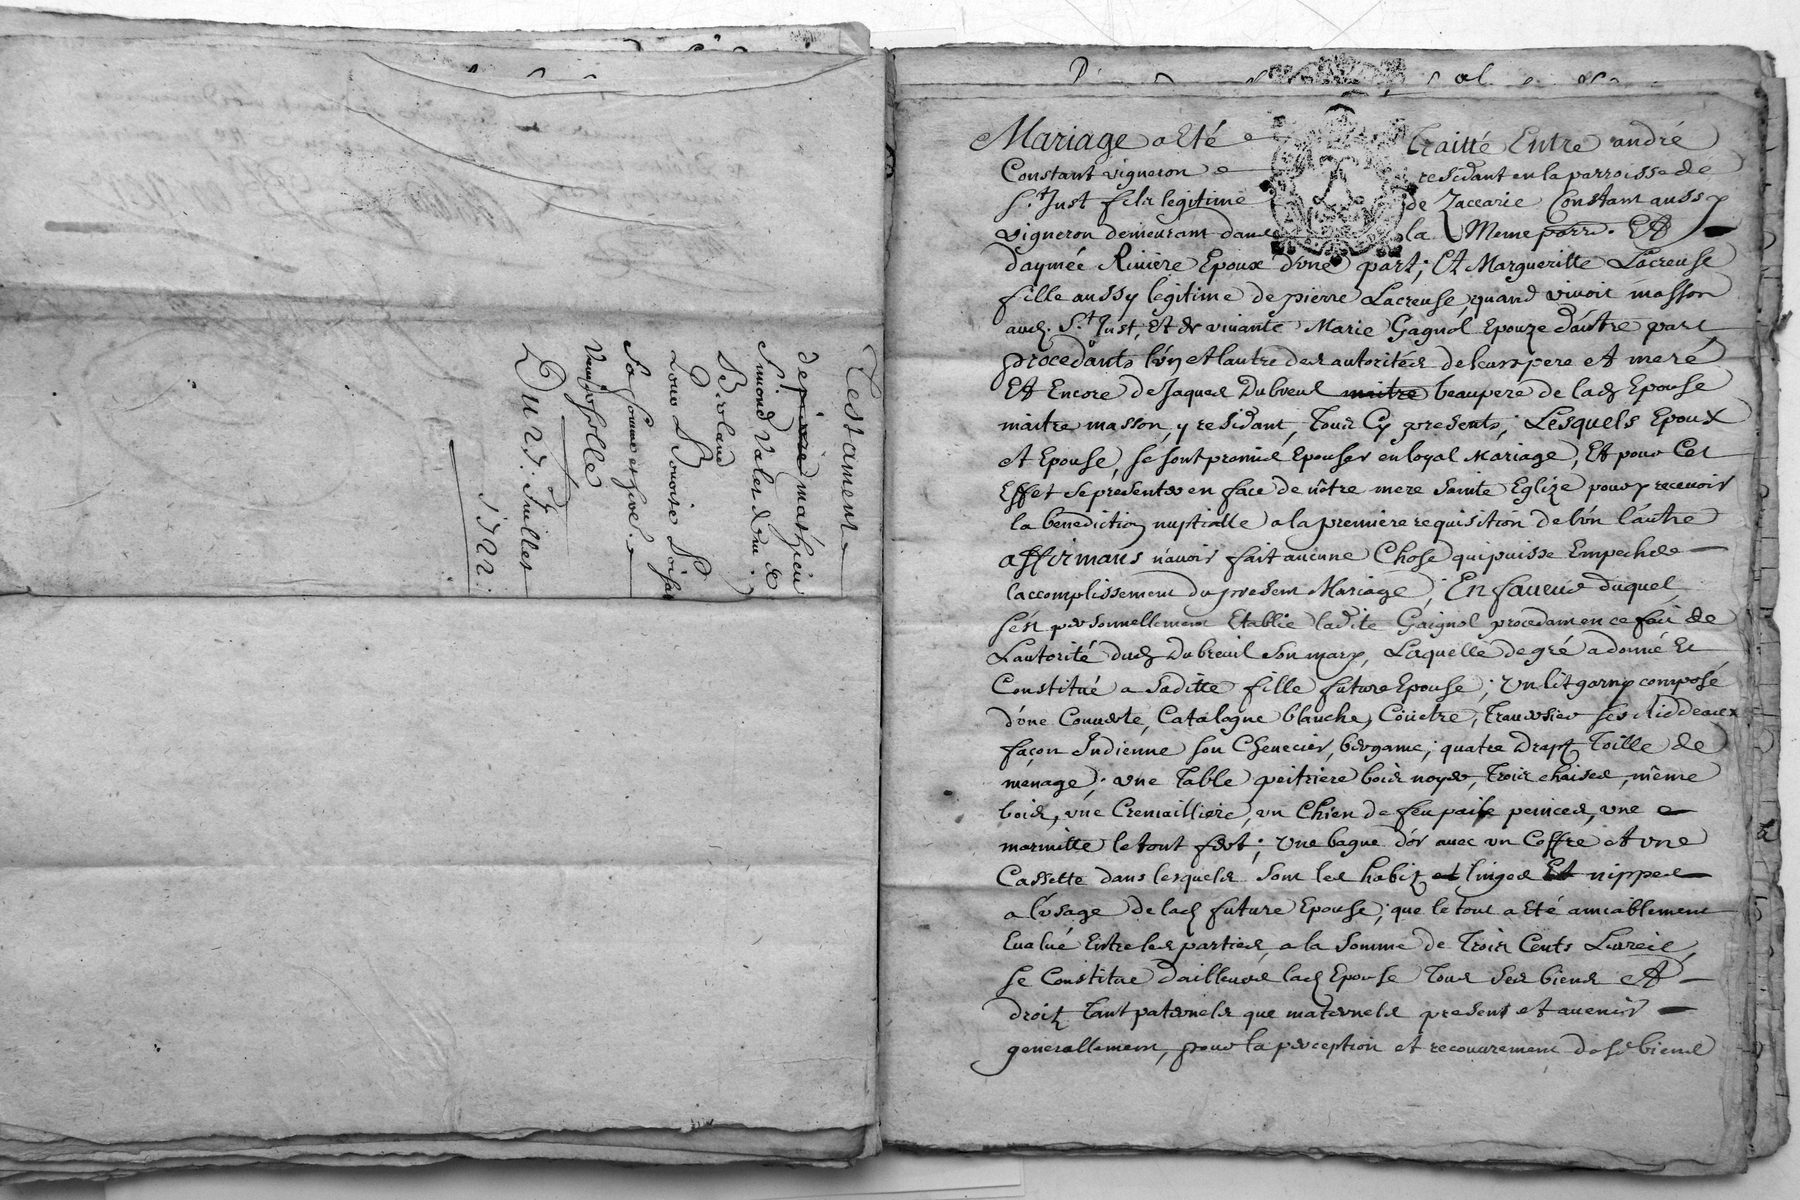 Testament
de pierre mathieu
Simond valet de
Louis
sa femme et
1722.
Mariage a Eté Traitté Entre andré
Constant vigneron residant en la parroisse de
St. Just fils legitime de Zaccarie Constant aussy
vigneron demeurant dans la Meme parr. Et
d'aymée Riviere Epoux d'vne part; Et Margueritte Lacreuse
fille aussy legitime de pierre Lacreuse quand vivoit masson
aud. St. Just, Et de vivante Marie Gagnol Epouze d'autre part
procedants l'vn et lautre des autorités de leurs pere et mere
Et Encore de Jaques Dubreul maitre beaupere de lad Epouse
maitre masson, y residant, Tous Cy presents, Lesquels Epoux
et Epouse, se sont promis Epouser en loyal Mariage, Et pour Cet
Effet se presenter en face de nôtre mere sainte Eglize pour y recevoir
la benediction nuptialle a la premiere requisition de l'vn l'autre
affirmans n'avoir fait aucune Chose qui puisse Empecher
laccomplissement du present Mariage; En faveur duquel
s'est personnellement Etablie ladite Gaignol procedam en ce fait de
Lautorité dud Dubreuil son mary, Laquelle de gré a donné Et
Constitué a saditte fille future Epouse; Un lit garny composé
d'vne Couverte Catalogne blanche, Coüetre, Traversier ses Riddeaux
façon Indienne son Chevecier, bergame; quatre Drapt Toille de
menage; vne Table peitriere bois noyer, Trois chaises, même
bois, vne Cremailliere, vn Chien de feu paire peinces, vne
marmitte le tout fert; Vne bague d'or avec vn Coffre et vne
Cassette dans lesquels sont les habitz et linges Et nippes
a l'vsage de lad future Epouse; que le tout a Eté amiablement
Evalué Entre les parties, a la somme de Trois Cents Livres,
se Constitue d'ailleurs lad Epouse Tous ses biens Et
droitz Tant paternels que maternels present et avenir
generallement, pour la perception et recouvrement desd biens